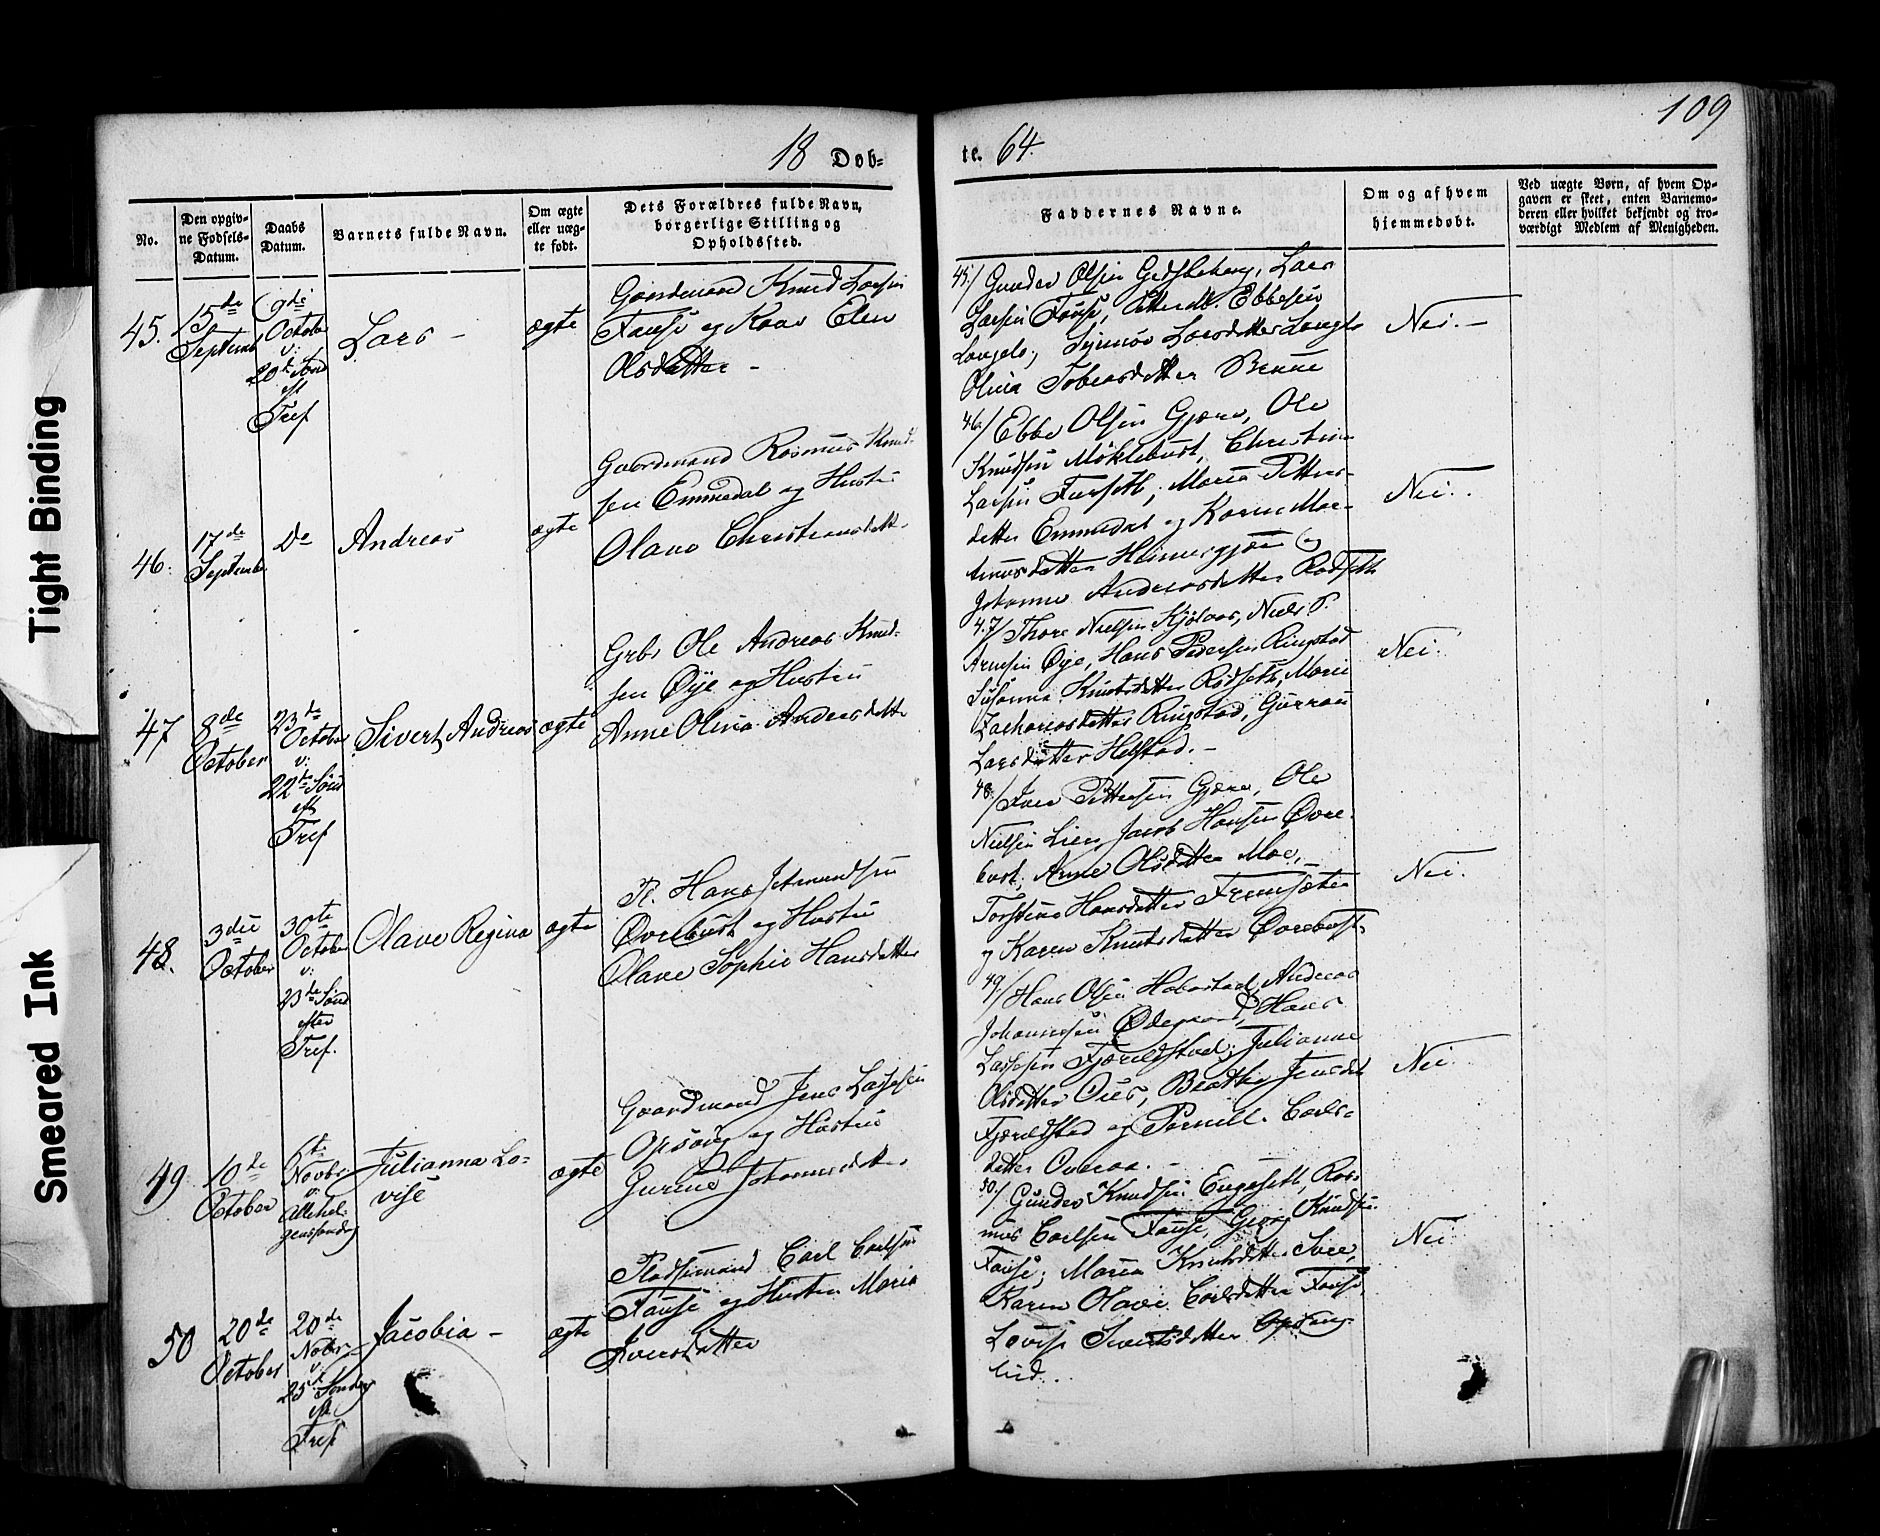 109
18 Døb-
te. 64.
No.
Den opgiv-
ne Fødsels-
Datum.
Daabs
Datum.
Barnets fulde Navn.
Om ægte
eller uæg-
te født.
Dets Forældres fulde Navn,
borgerlige Stilling og
Opholdssted.
Faddernes Navne.
Om og af hvem
hjemmedøbt.
Ved uægte Børn, af hvem Op-
gaven er skeet, enten Barnemo-
deren eller hvilket bekjendt og tro-
værdigt Medlem af Menigheden.
45.
15de
Septemb
9de
Octobr
v:
20de Sønd
eft
Tref
Lars -
ægte
Gaardmand Knud Larsen
Fause og Kone Elen
Olsdatter -
45/ Gunder Olsen
Lars
Larsen Fause, Ebbesen
Synnøv Larsdatter
Olina Tobiasdatter
Nei. -
46.
17de
Septembr
Do
Andreas
ægte
Gaardmand Rasmus Knud-
sen Emmedal og Hustru
Olave Christiansdatt.
46/ Ebbe Olsen Gjære, Ole
Knudsen Møklebust, Christian
Larsen Furseth; Maria Petters-
datter Emmedal og Karen
Johanne Andreasdatter Rødseth
Nei.
47
8de
October
23de
October
v:
22de Sønd
eft
Tref
Sivert Andreas
ægte
Grbr Ole Andreas Knud-
sen Øye og Hustru
Anne Olina Andersdatter
47/ Thore Nielsen Niels P.
Arnesen Øye, Hans Pedersen Ringstad
Susanna Knutsdatter Rødseth, Marie
Zachariasdatter Ringstad,
Larsdatter Helstad. -
Nei.
48.
3die
October
30te
October
v:
23de Sønd
efter
Tref.
Olave Regina
ægte
Pl. Hans Jetmundsen
Øvrebust og Hustru
Olave Sophie Hansdatter
48/ Iver Pettersen Gjære, Ole
Nielsen Lien, Jacob Hansen Øvre-
bust, Anne Olsdatter Moe,
Hansdatter
og Karen Knutsdatter Øvrebust.
Nei.
49
10de
October
6te
Novbr
v:
Allehel-
genssøndag
Julianna Lo-
vise
ægte
Gaardmand Jens Lassesen
Opsaug og Hustru
Gurine Johannesdatter
49/ Hans Olsen Andreas
Johannesen Ødegaard, Hans
Lassesen Fjærildstad; Julianne
Olsdatter Aus, Jensdat
Fjærildstad og Pernell. Carls-
datter Overaa. -
Nei.
50
20de
October
20de
Nobr
v.
25de Søndag
eft
Tref
Jacobia -
ægte
Pladsemand Carl Carlsen
Fause og Hustru Maria
Iversdatter
50/ Gunder Knudsen Engeseth, Ras-
mus Carlsen Fause, Georg Knudsen
Fause; Maria Knutsdatter
Karen Olave Carlsdatter Fause,
Lovise Sivertsdatter
Nei
Tight Binding
Smeared Ink